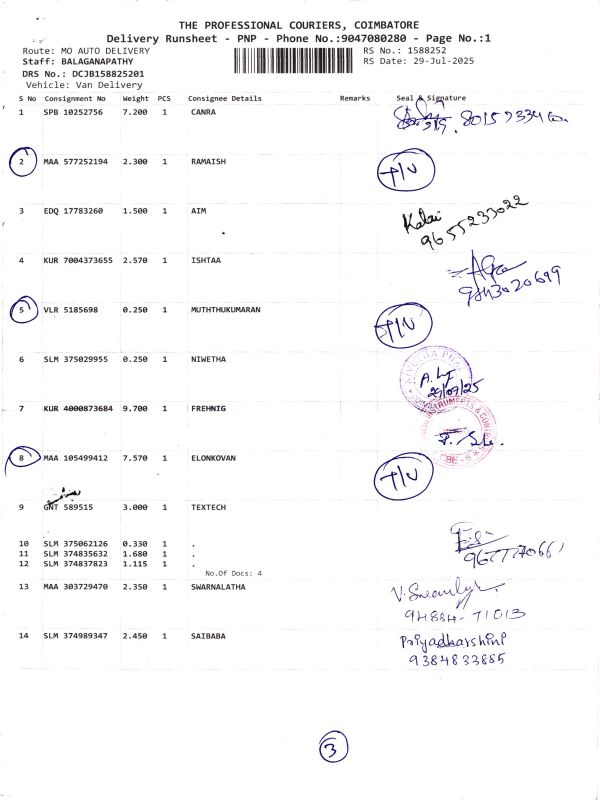 THE PROFESSIONAL COURIERS, COIMBATORE
Delivery Runsheet - PNP - Phone No.:9047080280 - Page No.:1
Route: MO AUTO DELIVERY RS No.: 1588252
Staff: BALAGANAPATHY RS Date: 29-Jul-2025
DRS No.: DCJB158825201
Vehicle: Van Delivery
S No Consignment No Weight PCS Consignee Details Remarks Seal & Signature
1 SPB 10252756 7.200 1 CANRA
2 MAA 577252194 2.300 1 RAMAISH
3 EDQ 17783260 1.500 1 AIM Kalai
9655233022
4 KUR 7004373655 2.570 1 ISHTAA
9843020699
5 VLR 5185698 0.250 1 MUTHTHUKUMARAN
6 SLM 375029955 0.250 1 NIWETHA
29/07/25
7 KUR 4000873684 9.700 1 FREHNIG
8 MAA 105499412 7.570 1 ELONKOVAN
9 GNT 589515 3.000 1 TEXTECH
10 SLM 375062126 0.330 1 .
11 SLM 374835632 1.680 1 .
12 SLM 374837823 1.115 1 .
No.Of Docs: 4
13 MAA 303729470 2.350 1 SWARNALATHA
94884-71013
14 SLM 374989347 2.450 1 SAIBABA Priyadharshini
9384833885
3